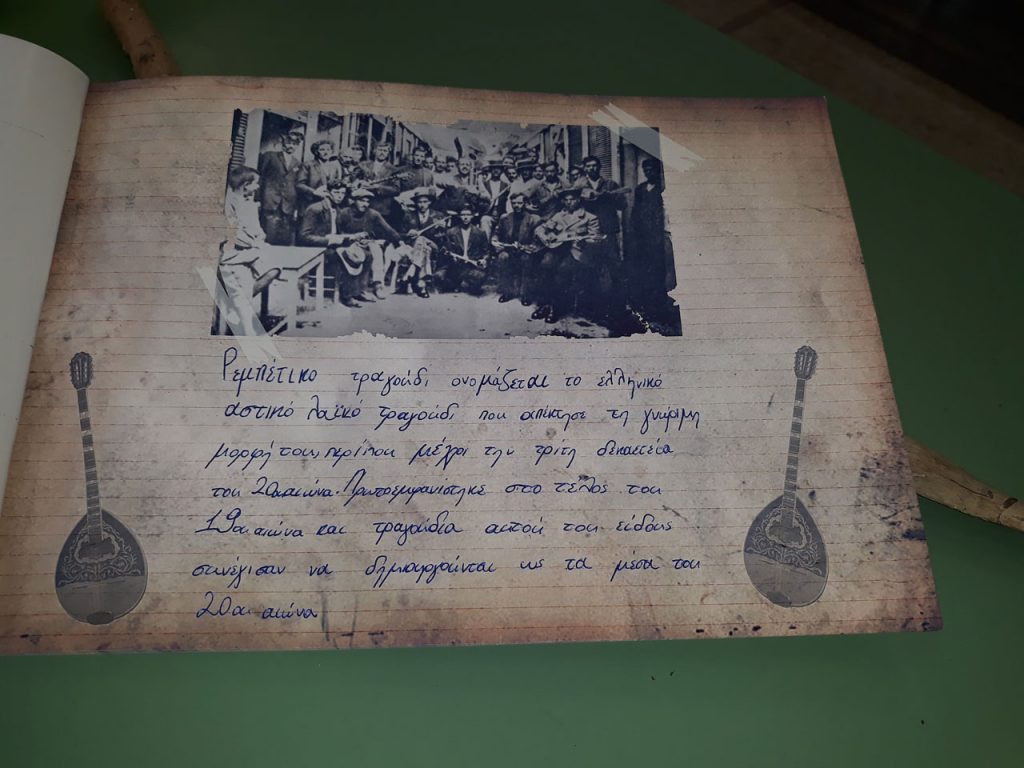 Ρεμπέτικο τραγούδι ονομάζεται το ελληνικό
αστικό λαϊκό τραγούδι που απέκτησε τη γνώριμη
μορφή του, περίπου μέχρι την τρίτη δεκαετία
του 20ου αιώνα. Πρωτοεμφανίστηκε στο τέλος του
19ου αιώνα και τραγούδια αυτού του είδους
συνέχισαν να δημιουργούνται ως τα μέσα του
20ου αιώνα